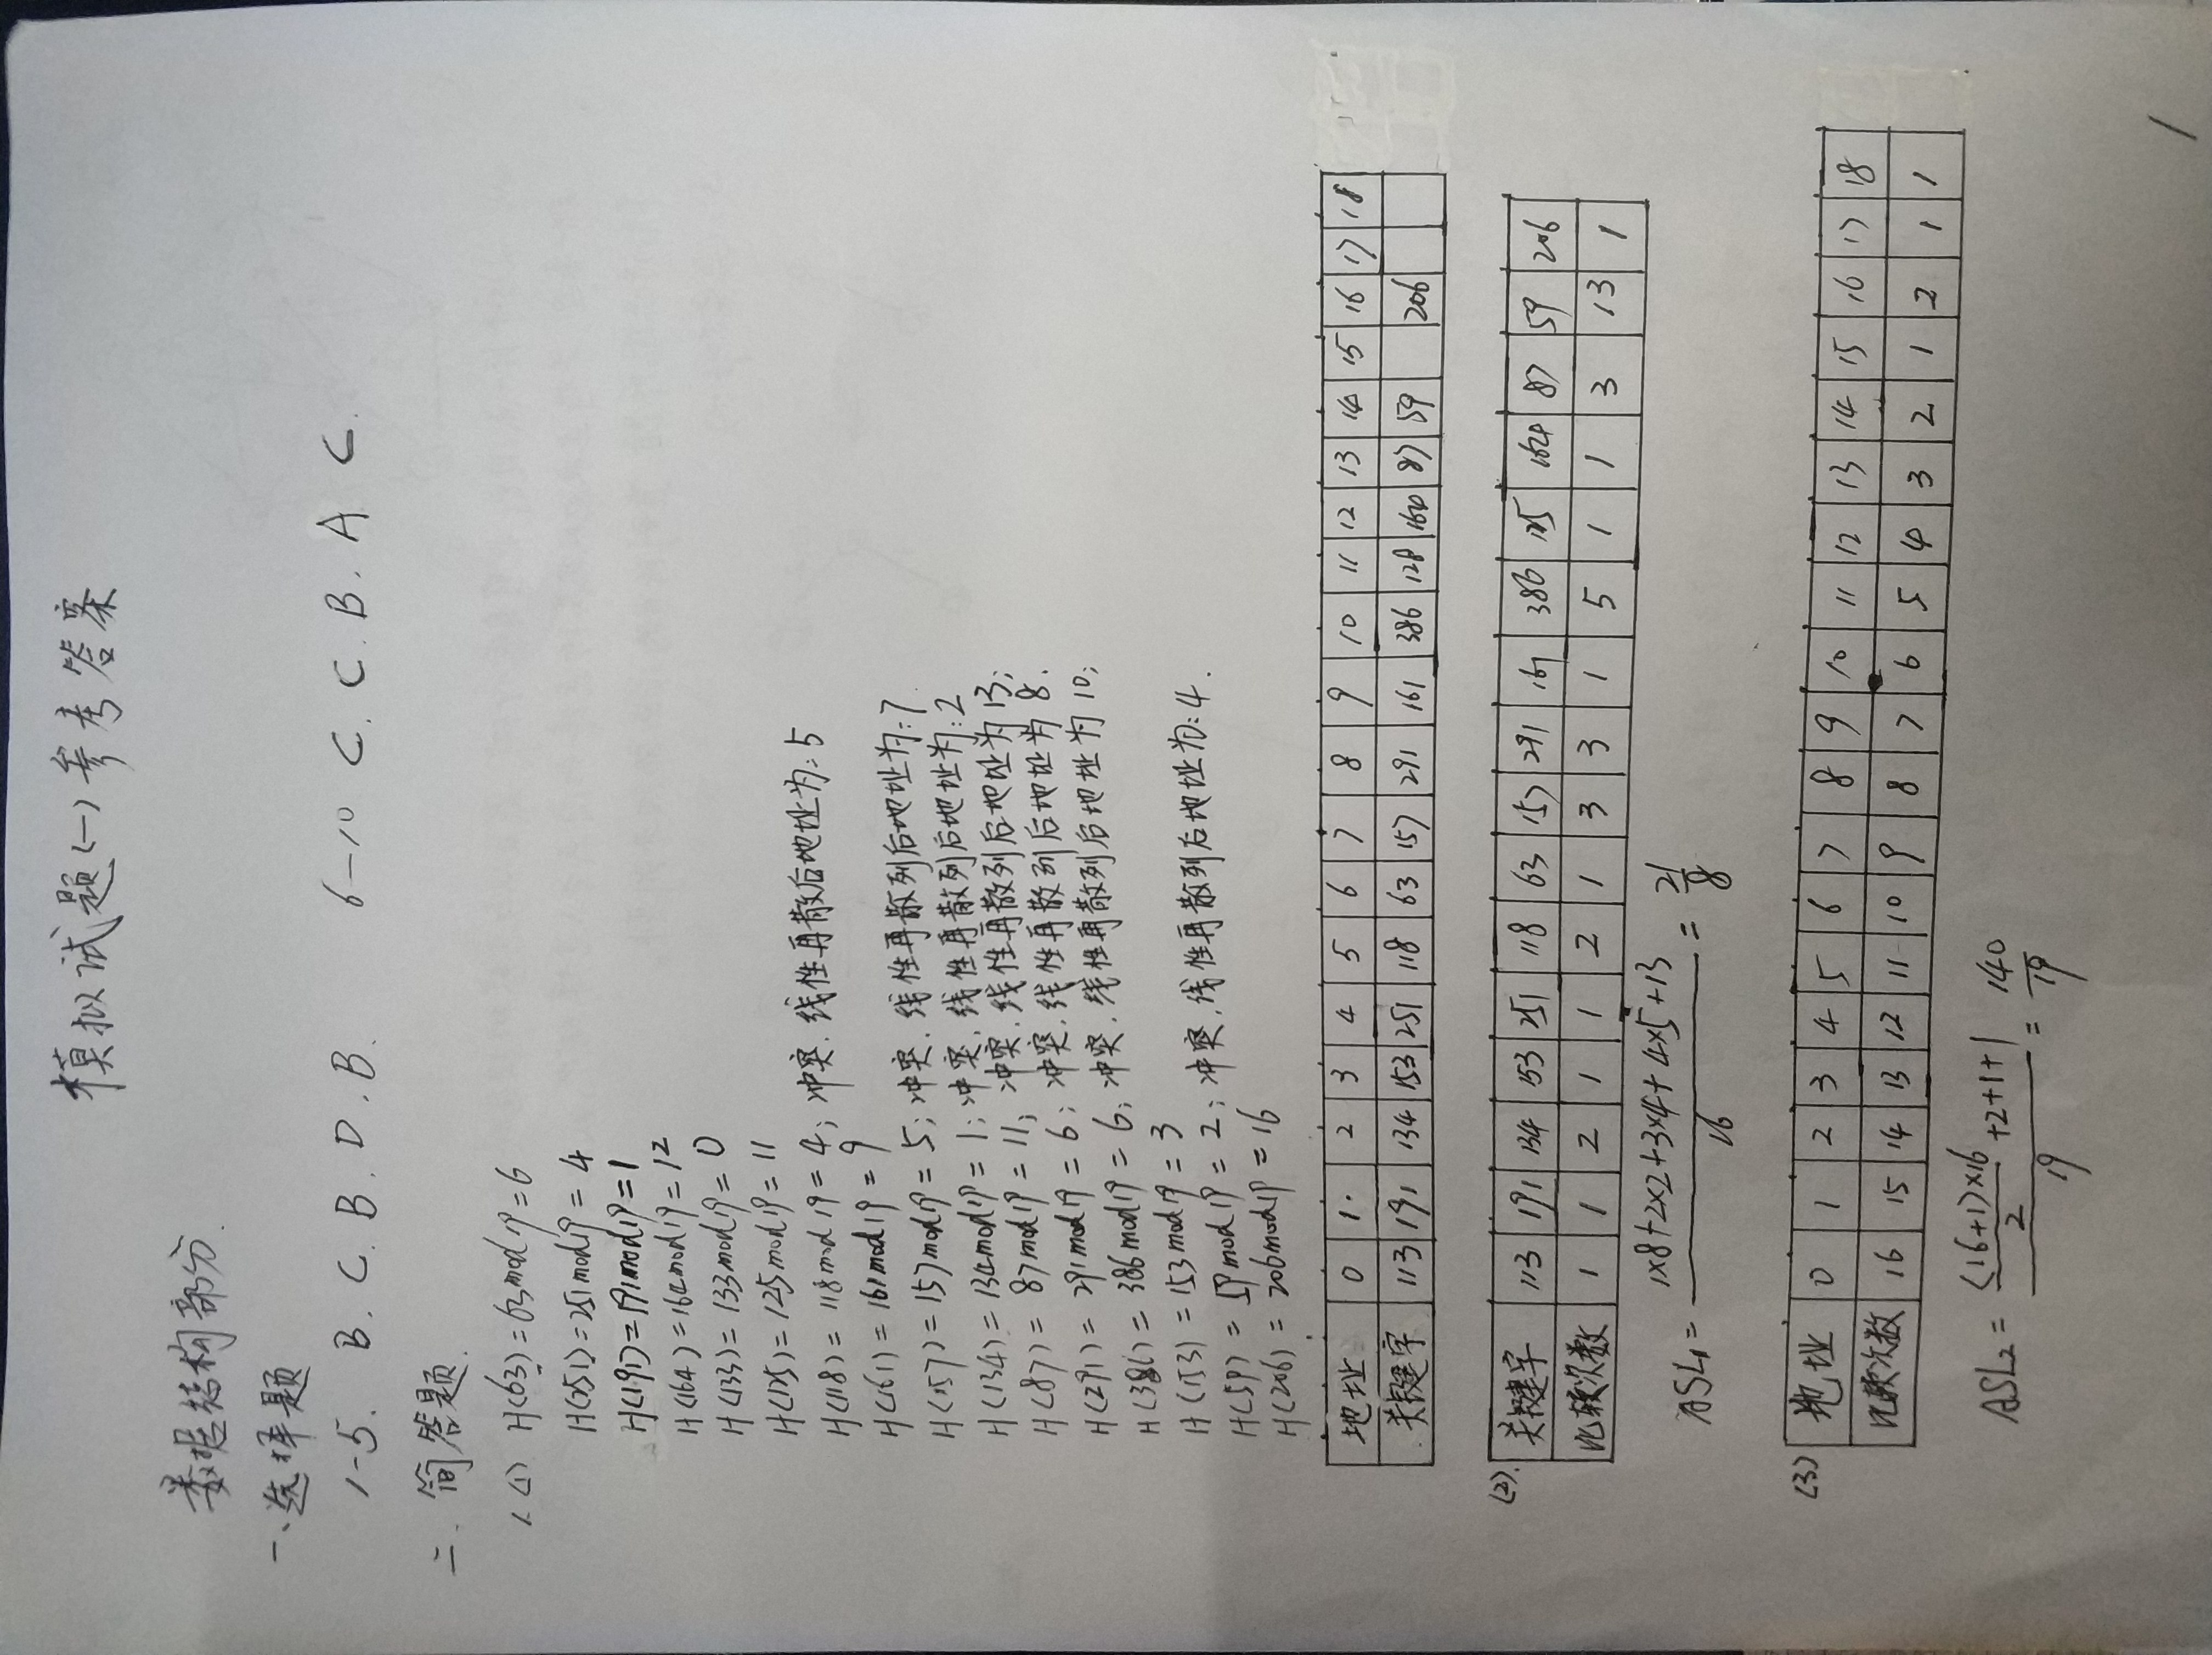 模拟试题(一)参考答案
数据结构部分.
一、选择题
1-5. B. C. B. D. B. 6-10 C. C. B. A C.
二. 简答题.
1. (1) H(63)=63mod19=6
H(251)=251mod19=4
H(191)=191mod19=1
H(164)=164mod19=12
H(133)=133mod19=0
H(125)=125mod19=11
H(118)=118mod19=4; 冲突. 线性再散后地址为:5
H(161)=161mod19=9
H(157)=157mod19=5; 冲突. 线性再散列后地址为:7
H(134)=134mod19=1; 冲突. 线性再散列后地址为:2
H(87)=87mod19=11; 冲突. 线性再散列后地址为13;
H(291)=291mod19=6; 冲突. 线性再散列后地址为8.
H(386)=386mod19=6; 冲突. 线性再散列后地址为10;
H(153)=153mod19=3
H(59)=59mod19=2; 冲突. 线性再散列后地址为:4.
H(206)=206mod19=16
地址 0 1 2 3 4 5 6 7 8 9 10 11 12 13 14 15 16 17 18
关键字 113 191 134 153 251 118 63 157 291 161 386 128 164 87 59 206
(2). 关键字 113 191 134 153 251 118 63 157 291 161 386 125 164 87 59 206
比较次数 1 1 2 1 1 2 1 3 3 1 5 1 1 3 13 1
ASL1=(1×8+2×2+3×4+4×5+13)/16=21/8
(3) 地址 0 1 2 3 4 5 6 7 8 9 10 11 12 13 14 15 16 17 18
比较次数 16 15 14 13 12 11 10 9 8 7 6 5 4 3 2 1 2 1 1
ASL2=((16+1)×16/2+2+1+1)/19=140/19
1